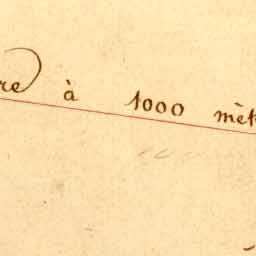 re à 1000 mèt